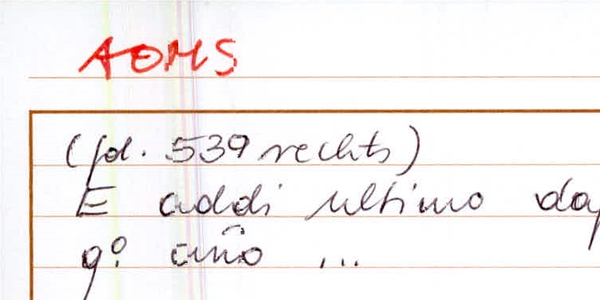 AOMS
(fol. 539 rechts)
E addi ultimo
go: año ...